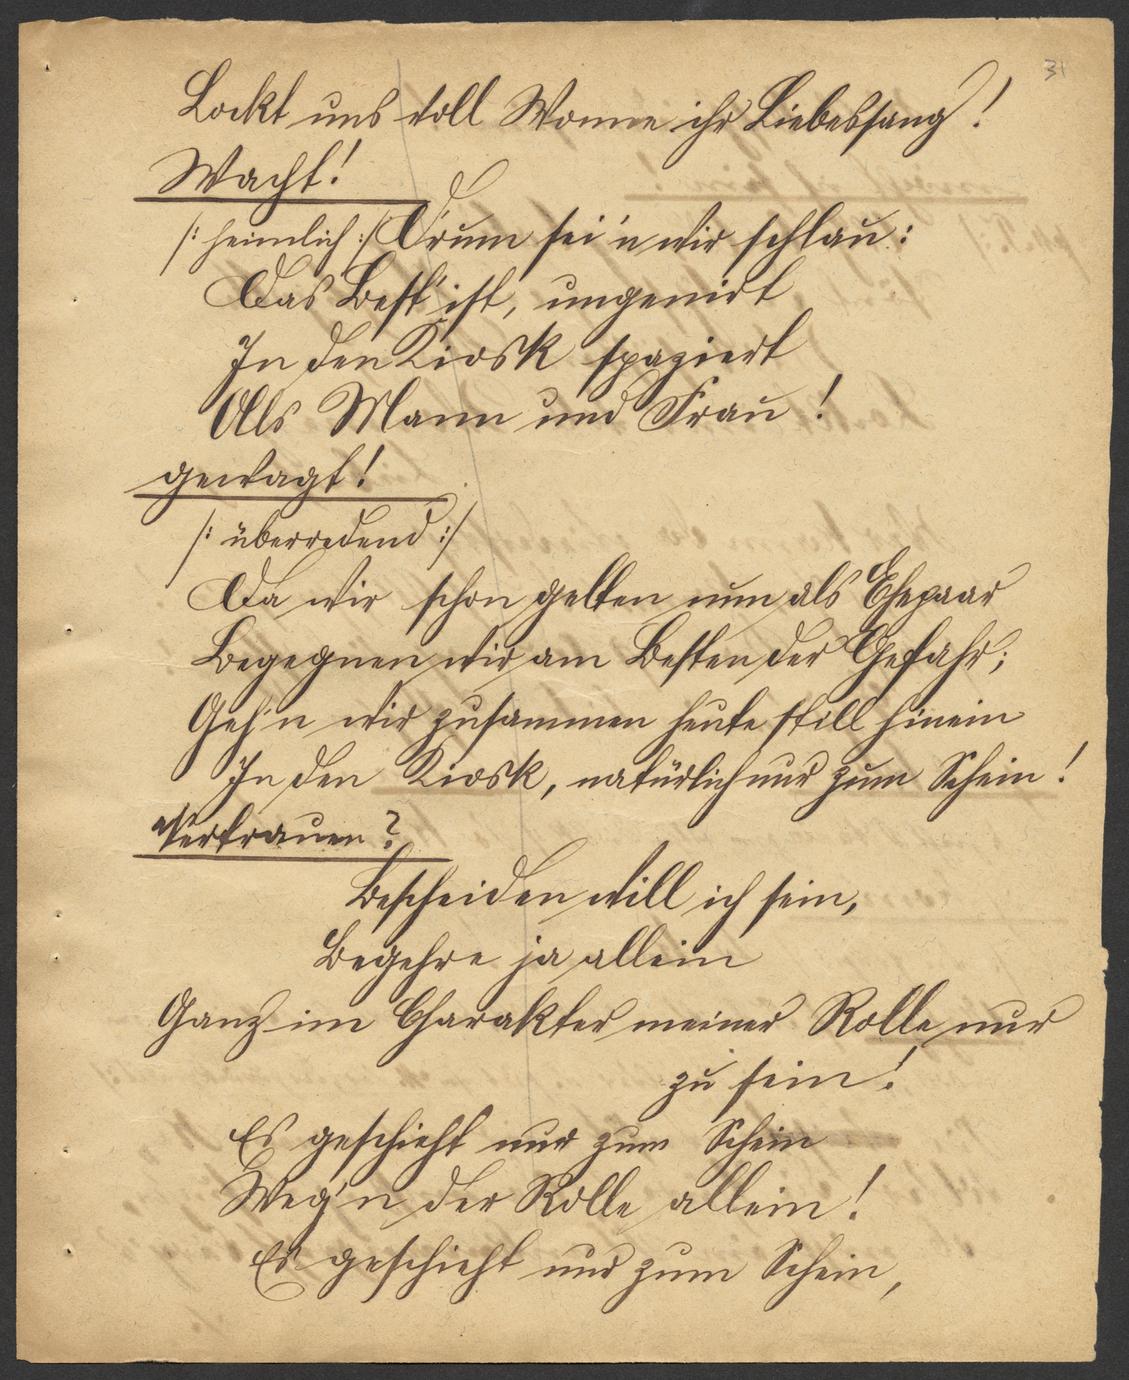 31
Lockt uns voll Wonne ihr Liebessang!
Wacht!
/: heimlich :/ D'rum sei'n wir schlau:
Das Best' ist, ungenirt
In den Kiosk spaziert
Als Mann und Frau!
gewagt!
/: überredend :/
Da wir schon gelten nun als Ehepaar
Begegnen wir am Besten der Gefahr;
Geh'n wir zusammen heute still hinein
In den Kiosk, natürlich nur zum Schein!
Vertrauen?
Bescheiden will ich sein,
Begehre ja allein
Ganz im Charakter meiner Rolle nur
zu sein!
Es geschieht nur zum Schein
Weg'n der Rolle allein!
Es geschieht nur zum Schein,